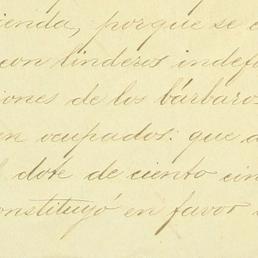 cienda, porque se e
con linderos indefi
iones de los bárbaros
en ocupados: que a
dote de ciento cin
onstituyó en favor